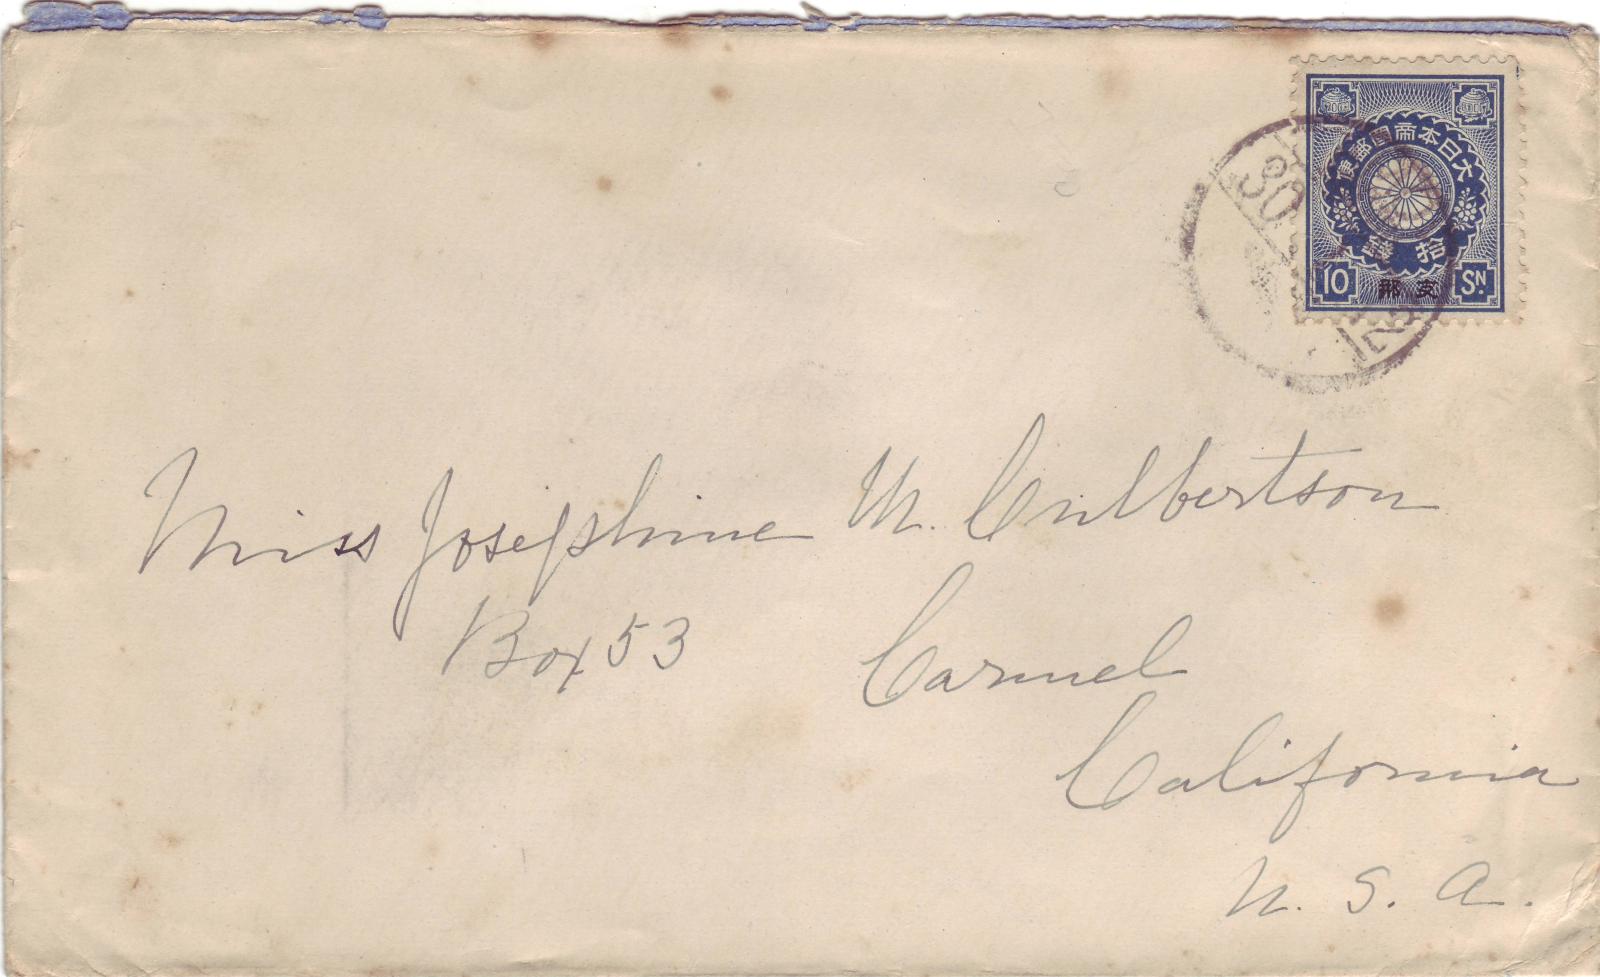 大日本帝國郵便
拾錢
支那
10 SN.
Miss Josephine M. Culbertson
Box 53
Carmel
California
U. S. A.